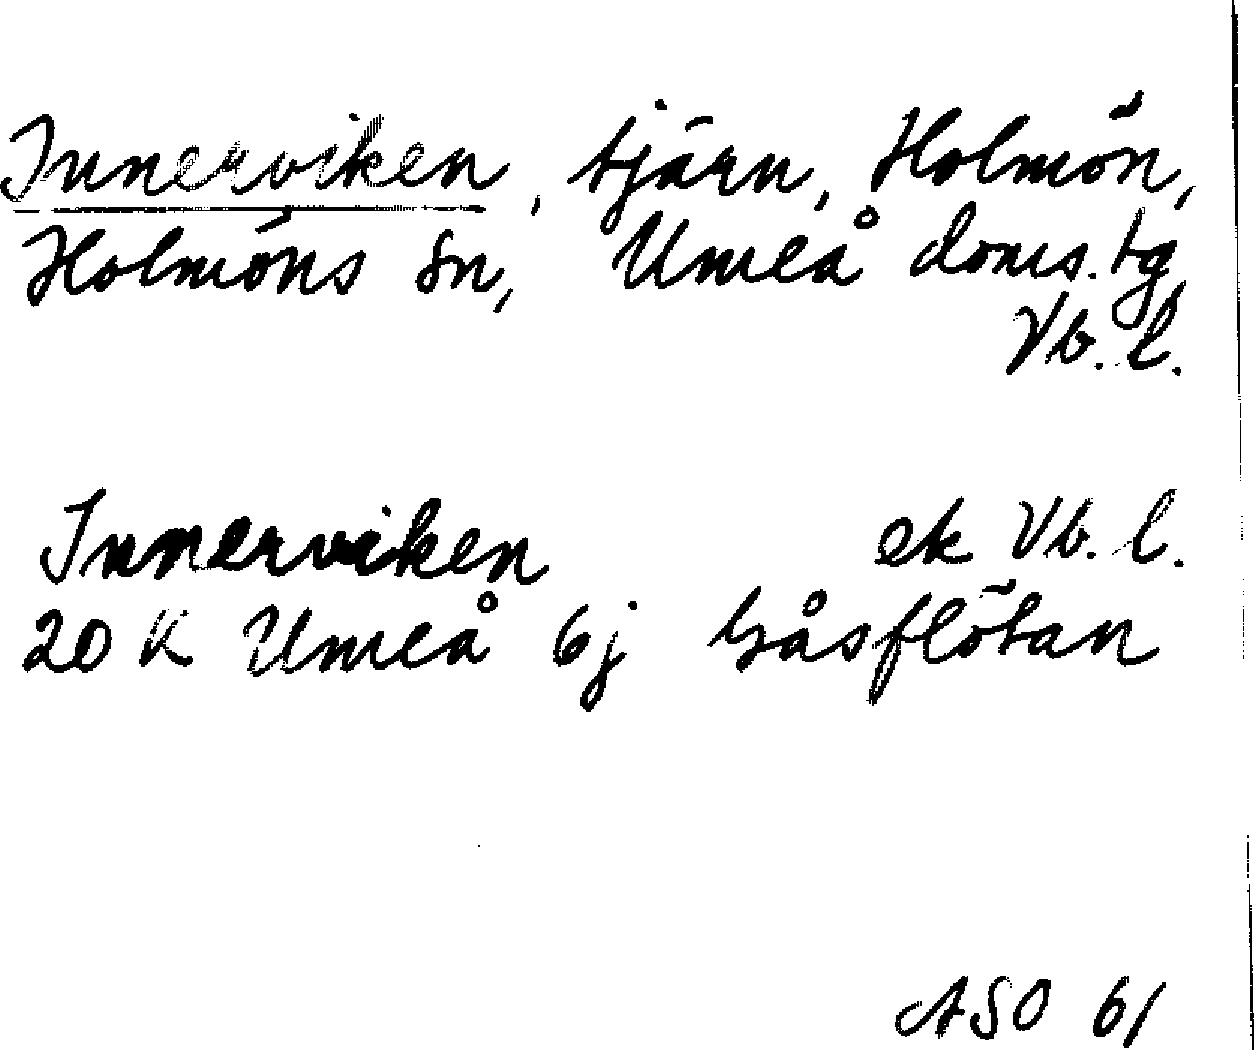 Innerviken, tjärn, Holmön,
Holmöns sn, Umeå doms.tg
Vb. l.
Innerviken ek Vb. l.
20 K Umeå 6j Gåsflötan
ASO 61